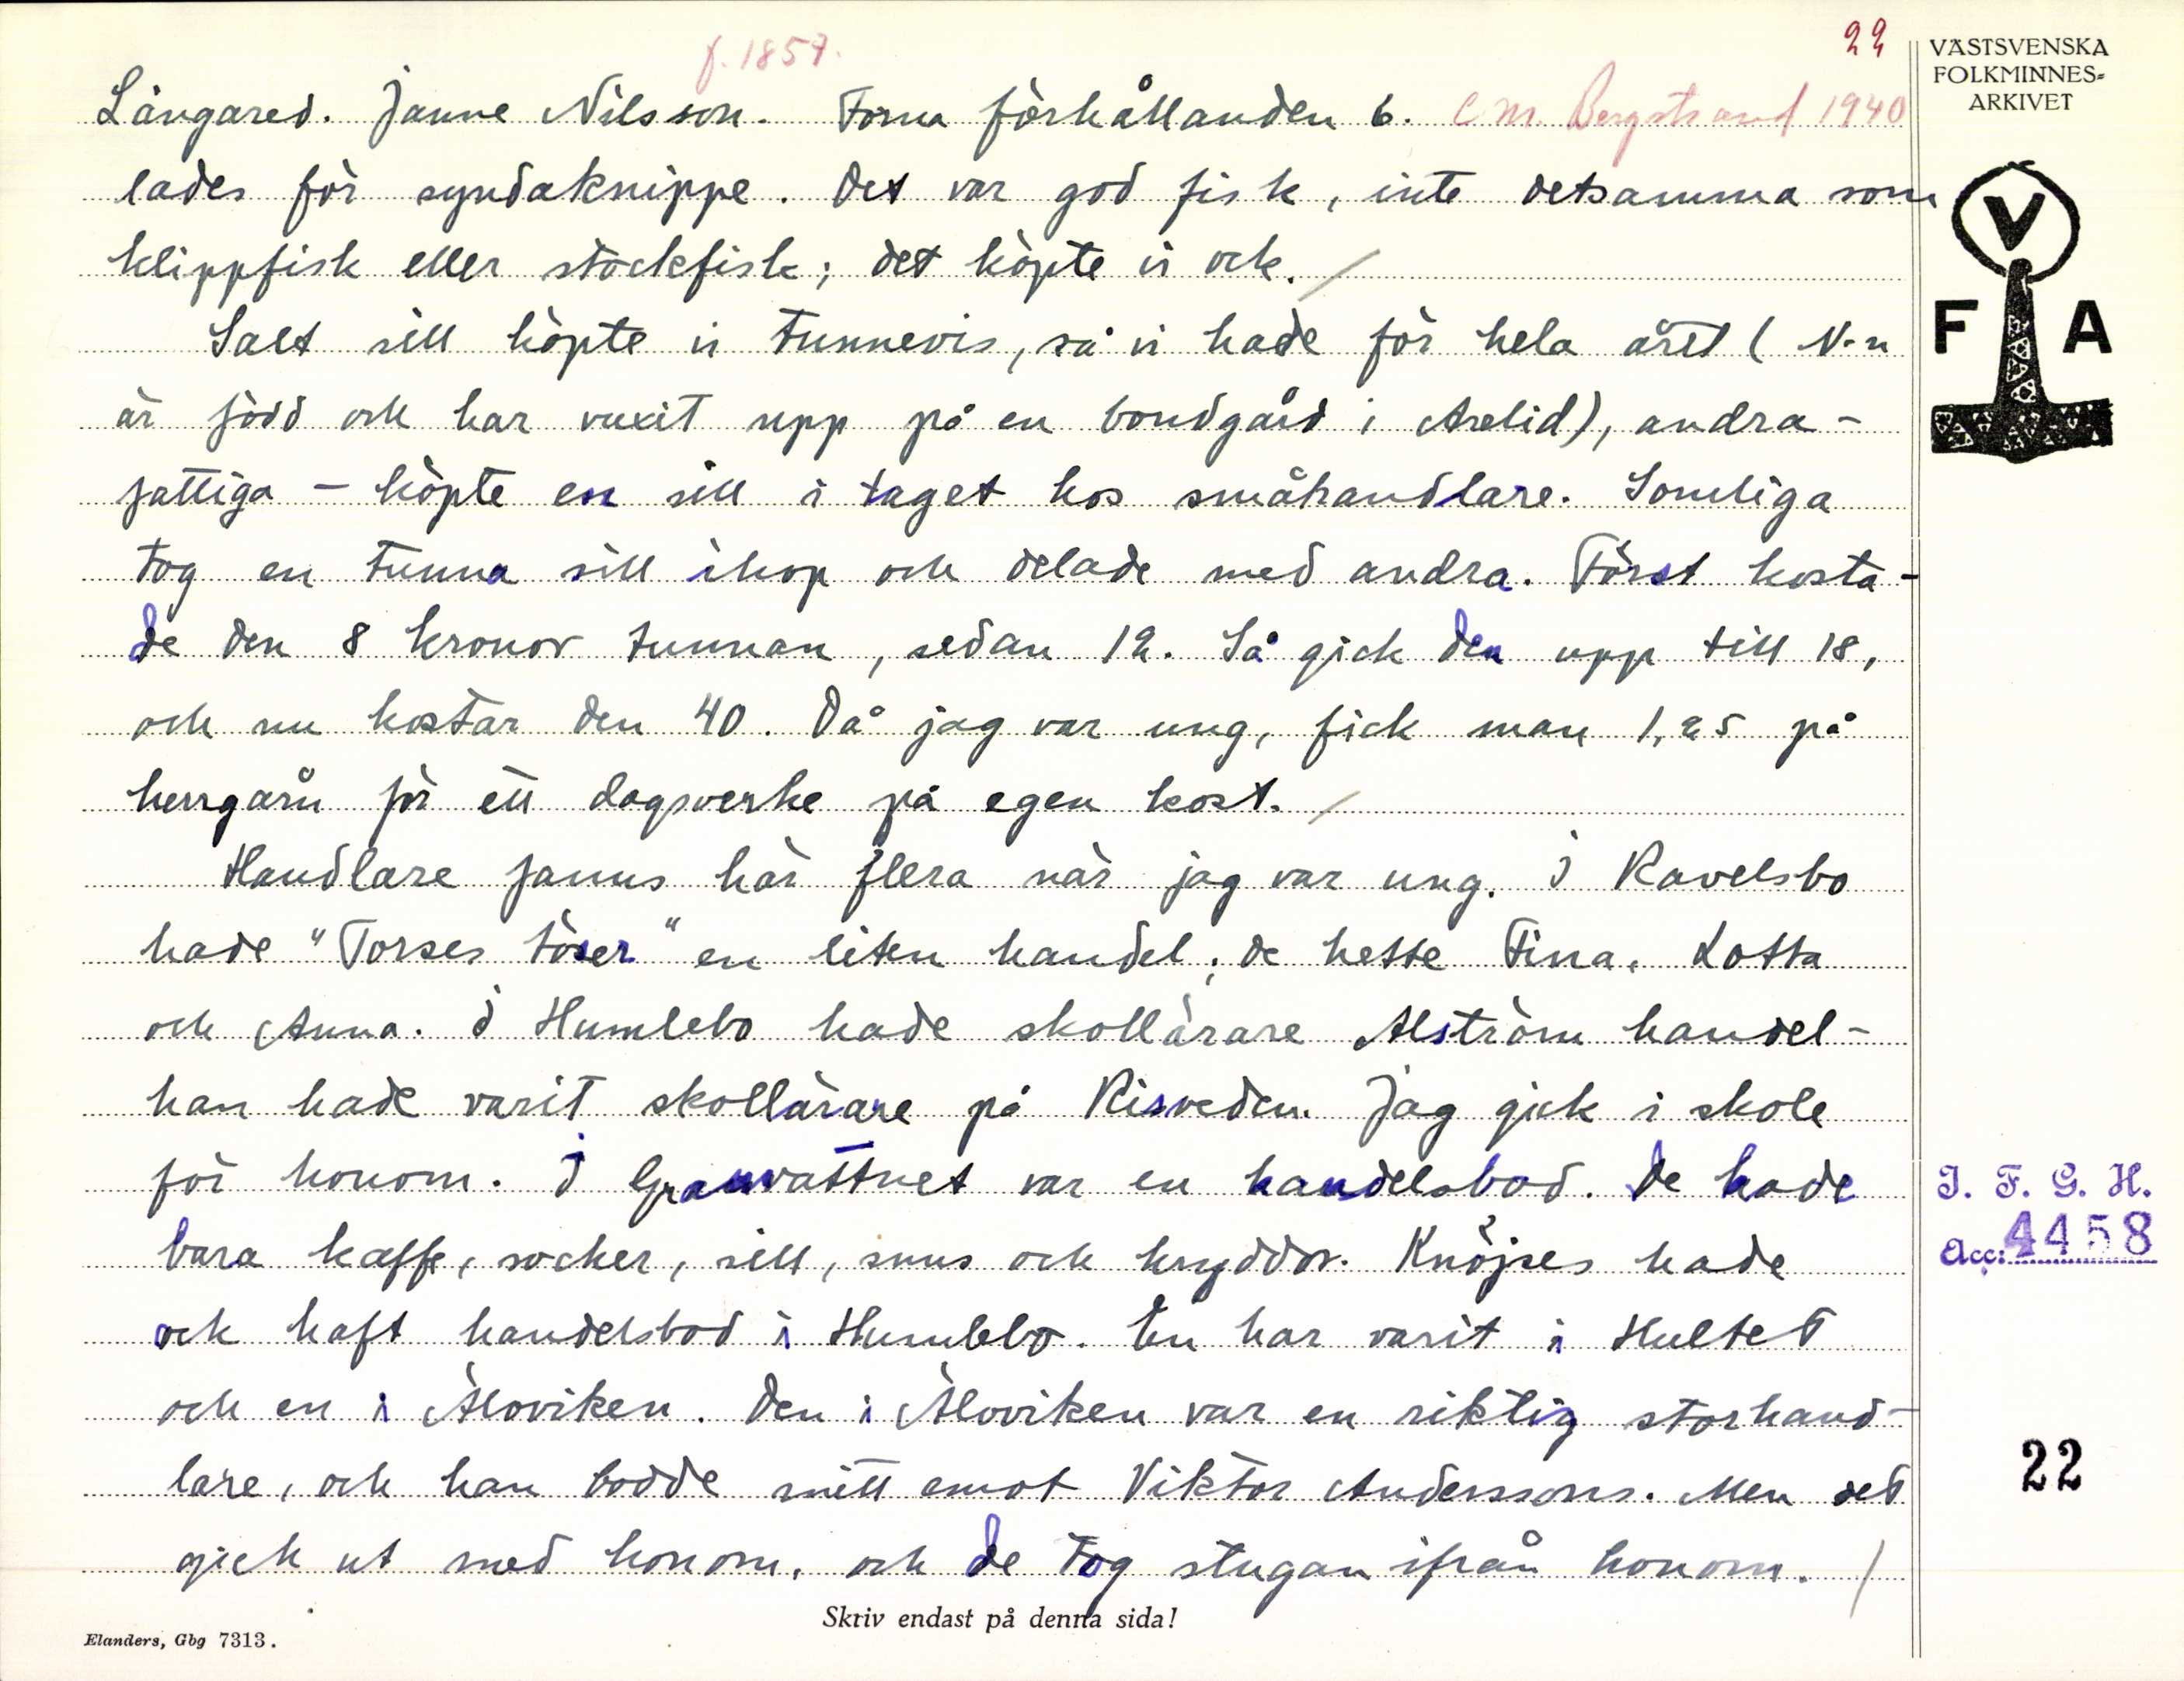 f. 1857.
22
Långared. Janne Nilsson. Forna förhållanden 6. C. M. Bergstrand 1940
lades för syndaknippe. Det var god fisk, inte detsamma som
klippfisk eller stockfisk; det köpte vi ock. /
Salt sill köpte vi tunnevis, så vi hade för hela året (N-n
är född och har vuxit upp på en bondgård i Arelid), andra -
fattiga - köpte en sill i taget hos småhandlare. Somliga
tog en tunna sill ihop och delade med andra. Först kosta-
de den 8 kronor tunnan, sedan 12. Så gick den upp till 18,
och nu kostar den 40. Då jag var ung, fick man 1,25 på
herrgårn för ett dagsverke på egen kost. /
Handlare fanns här flera när jag var ung. I Ravelsbo
hade "Torses töser" en liten handel; de hette Fina, Lotta
och Anna. I Humlebo hade skollärare Alström handel -
han hade varit skollärare på Risveden. Jag gick i skole
för honom. I Granvattnet var en handelsbod. De hade
bara kaffe, socker, sill, snus och kryddor. Knöjses hade
ock haft handelsbod i Humlebo. En har varit i Hultet
och en i Åloviken. Den i Åloviken var en riktig storhand-
lare, och han bodde mitt emot Viktor Anderssons. Men det
gick ut med honom, och de tog stugan ifrån honom. /
Skriv endast på denna sida!
Elanders, Gbg 7313.
VÄSTSVENSKA
FOLKMINNES=
ARKIVET
V
F A
I. F. G. H.
Acc: 4458
22